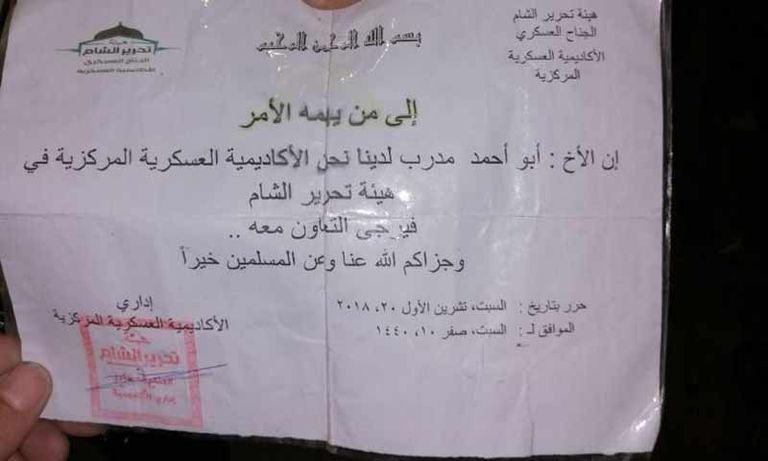 هيئة تحرير الشام
الجناح العسكري
الأكاديمية العسكرية
المركزية
بسم الله الرحمن الرحيم
هيئة
تحرير الشام
الجناح العسكري
إلى من يهمه الأمر
إن الأخ : أبو أحمد مدرب لدينا نحن الأكاديمية العسكرية المركزية في
هيئة تحرير الشام
فيرجى التعاون معه ..
وجزاكم الله عنا وعن المسلمين خيراً
حرر بتاريخ : السبت، تشرين الأول ٢٠، ٢٠١٨
الموافق لـ : السبت، صفر ١٠، ١٤٤٠
إداري
الأكاديمية العسكرية المركزية
هيئة
تحرير الشام